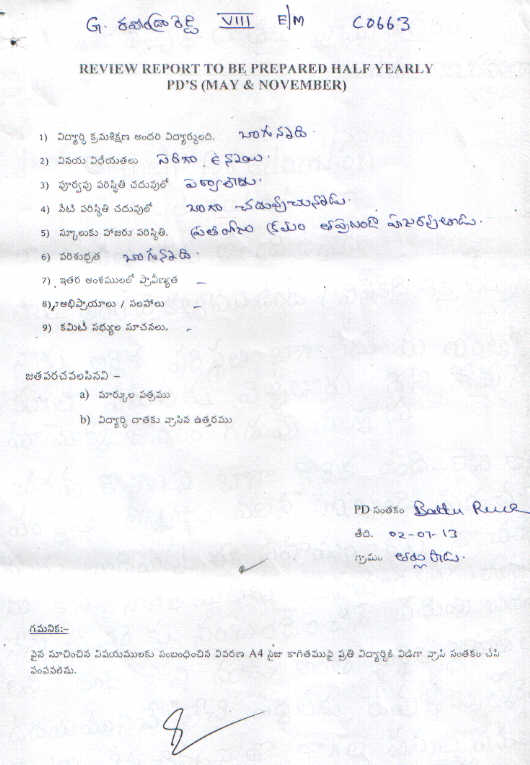 G. రవీంద్రా రెడ్డి VIII E/M C0663
REVIEW REPORT TO BE PREPARED HALF YEARLY
PD'S (MAY & NOVEMBER)
1) విద్యార్థి క్రమశిక్షణ అందరి విద్యార్థులది. బాగున్నాది.
2) వినయ విధేయతలు
3) పూర్వపు పరిస్థితి చదువులో
4) నేటి పరిస్థితి చదువులో బాగా చదువుచున్నాడు.
5) స్కూలుకు హాజరు పరిస్థితి. ప్రతిరోజు క్రమం తప్పకుండా హాజరవుతాడు.
6) పరిశుభ్రత బాగున్నాది.
7) ఇతర అంశములలో ప్రావీణ్యత –
8) అభిప్రాయాలు / సలహాలు –
9) కమిటీ సభ్యుల సూచనలు. -
జతపరచవలసినవి –
a) మార్కుల పత్రము
b) విద్యార్థి దాతకు వ్రాసిన ఉత్తరము
PD సంతకం
తేది. 02-07-13
గ్రామం.
గమనిక:-
పైన సూచించిన విషయములకు సంబంధించిన వివరణ A4 సైజు కాగితముపై ప్రతి విద్యార్థికి విడిగా వ్రాసి సంతకం చేసి
పంపవలెను.